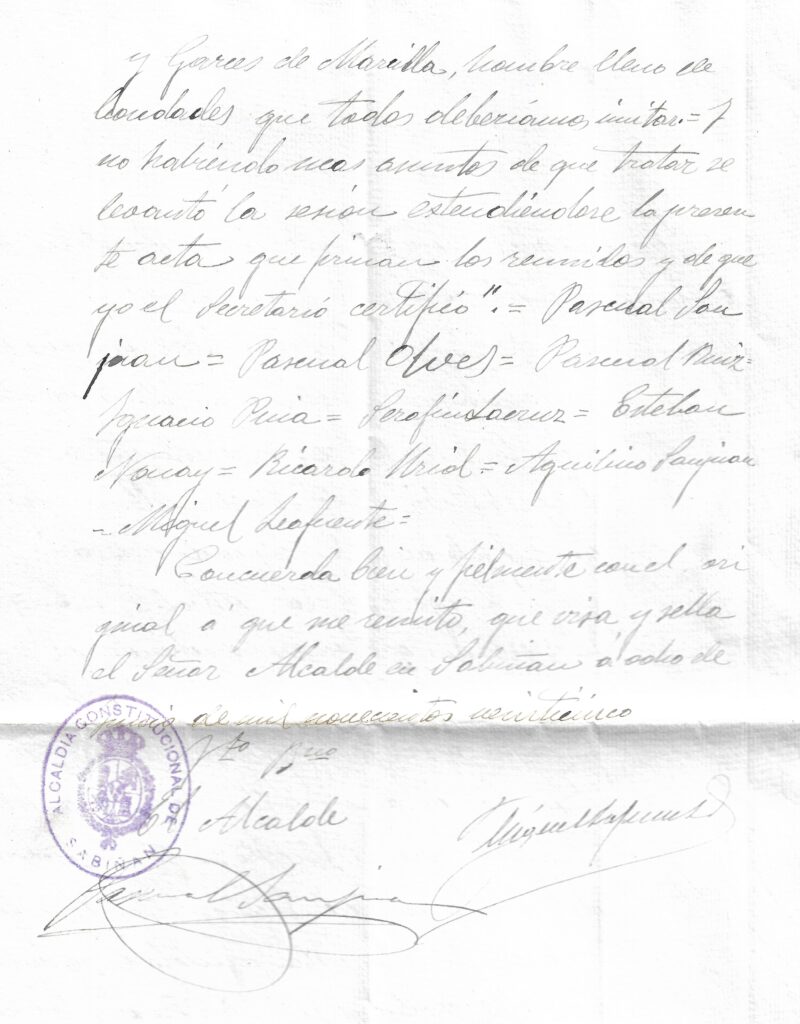 y Garces de Marcilla, hombre lleno de
bondades que todos deberiámos imitar.= Y
no habiéndo mas asuntos de que tratar se
levantó la sesión estendiéndose la presen
te acta que firman los reunidos y de que
yo el Secretario certifico".= Pascual San
juan= Pascual Olves= Pascual Ruiz=
Ignacio Pina= Serafin Lacruz= Esteban
Nonay= Ricardo Uriol= Aquilino Sanjuan
= Miguel Lafuente=
Concuerda bien y fielmente con el ori
ginal á que me remito, que visa y sella
el Señor Alcalde en Sabiñan á ocho de
de mil novecientos veinticinco
Vto Bno
El Alcalde
Miguel Lafuente
Pascual Sanjuan
ALCALDIA CONSTITUCIONAL DE
SABIÑAN